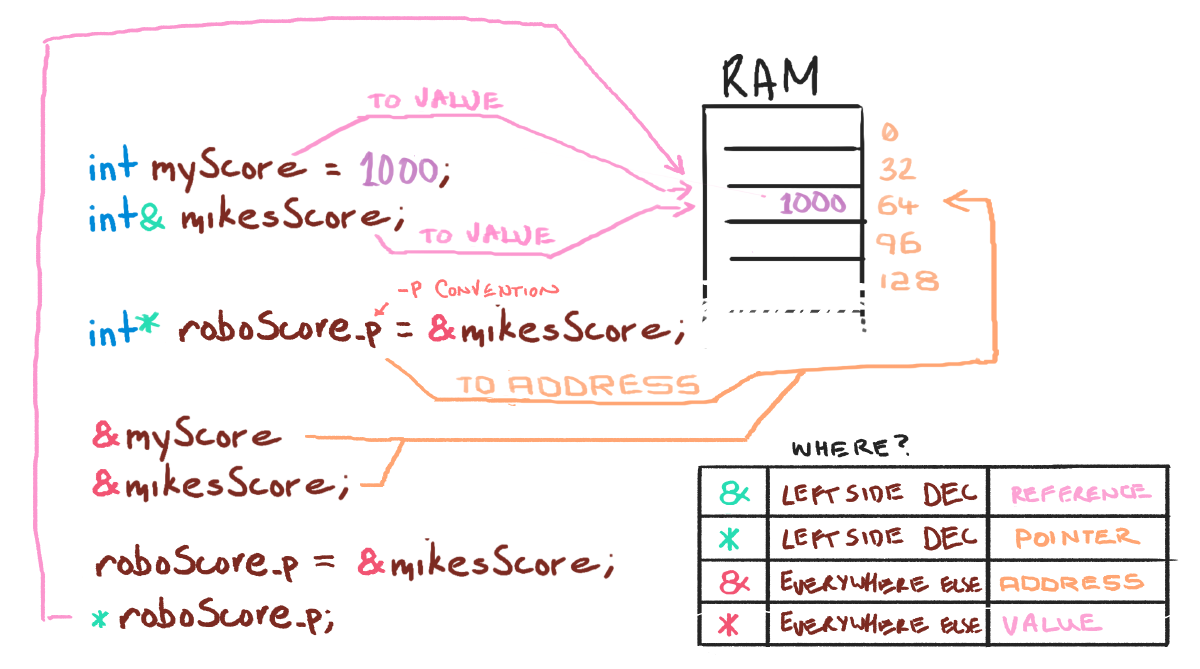 RAM
TO VALUE
int myScore = 1000;
int& mikesScore;
TO VALUE
0
32
1000 64
96
128
-P CONVENTION
int* roboScore_p = &mikesScore;
TO ADDRESS
&myScore
&mikesScore;
roboScore_p = &mikesScore;
* roboScore_p;
WHERE?
& LEFT SIDE DEC REFERENCE
* LEFT SIDE DEC POINTER
& EVERYWHERE ELSE ADDRESS
* EVERYWHERE ELSE VALUE